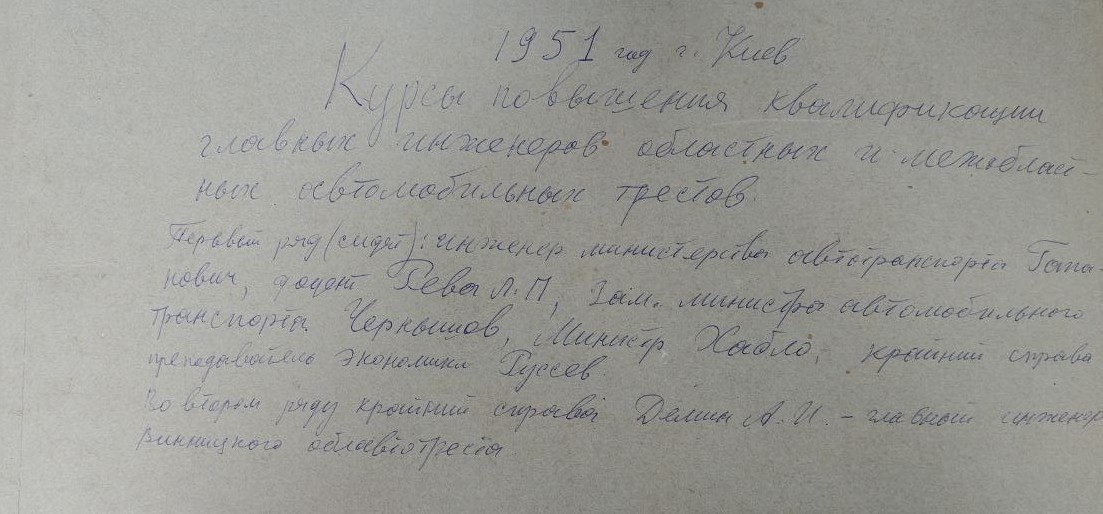 1951 год г. Киев
Курсы повышения квалификации
главных инженеров областных и межобласт-
ных автомобильных трестов.
Первый ряд (сидят): инженер министерства автотранспорта Гапа-
нович, доцент Рева Л.П, Зам. министра автомобильного
транспорта Чернышов, Министр Хабло, крайний справа
преподаватель экономики Руссев.
Во втором ряду крайний справа Демин А.И. - главный инженер
Винницкого облавтотреста